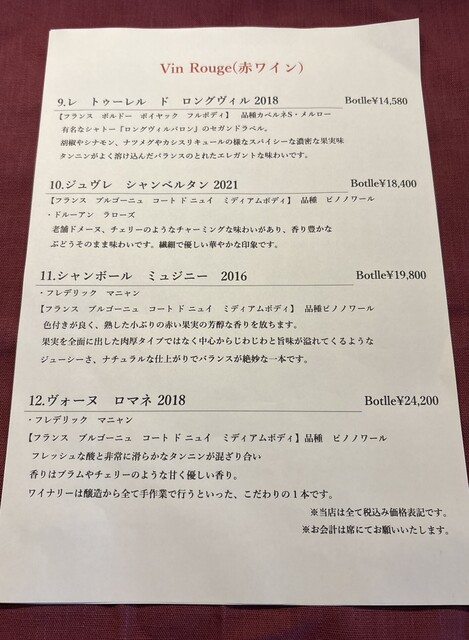 Vin Rouge(赤ワイン)
9.レ　トゥーレル　ド　ロングヴィル 2018　Botlle¥14,580
【フランス　ボルドー　ポイヤック　フルボディ】　品種カベルネS・メルロー
有名なシャトー『ロングヴィルバロン』のセガンドラベル。
胡椒やシナモン、ナツメグやカシスリキュールの様なスパイシーな濃密な果実味
タンニンがよく溶け込んだバランスのとれたエレガントな味わいです。
10.ジュヴレ　シャンベルタン 2021　Botlle¥18,400
【フランス　ブルゴーニュ　コート ド ニュイ　ミディアムボディ】　品種　ピノノワール
・ドルーアン　ラローズ
老舗ドメーヌ、チェリーのようなチャーミングな味わいがあり、香り豊かな
ぶどうそのまま味わいです。繊細で優しい華やかな印象です。
11.シャンボール　ミュジニー　2016　Botlle¥19,800
・フレデリック　マニャン
【フランス　ブルゴーニュ　コート ド ニュイ　ミディアムボディ】　品種ピノノワール
色付きが良く、熟した小ぶりの赤い果実の芳醇な香りを放ちます。
果実を全面に出した肉厚タイプではなく中心からじわじわと旨味が溢れてくるような
ジューシーさ、ナチュラルな仕上がりでバランスが絶妙な一本です。
12.ヴォーヌ　ロマネ 2018　Botlle¥24,200
・フレデリック　マニャン
【フランス　ブルゴーニュ　コート ド ニュイ　ミディアムボディ】品種　ピノノワール
フレッシュな酸と非常に滑らかなタンニンが混ざり合い
香りはプラムやチェリーのような甘く優しい香り。
ワイナリーは醸造から全て手作業で行うといった、こだわりの１本です。
※当店は全て税込み価格表記です。
※お会計は席にてお願いいたします。